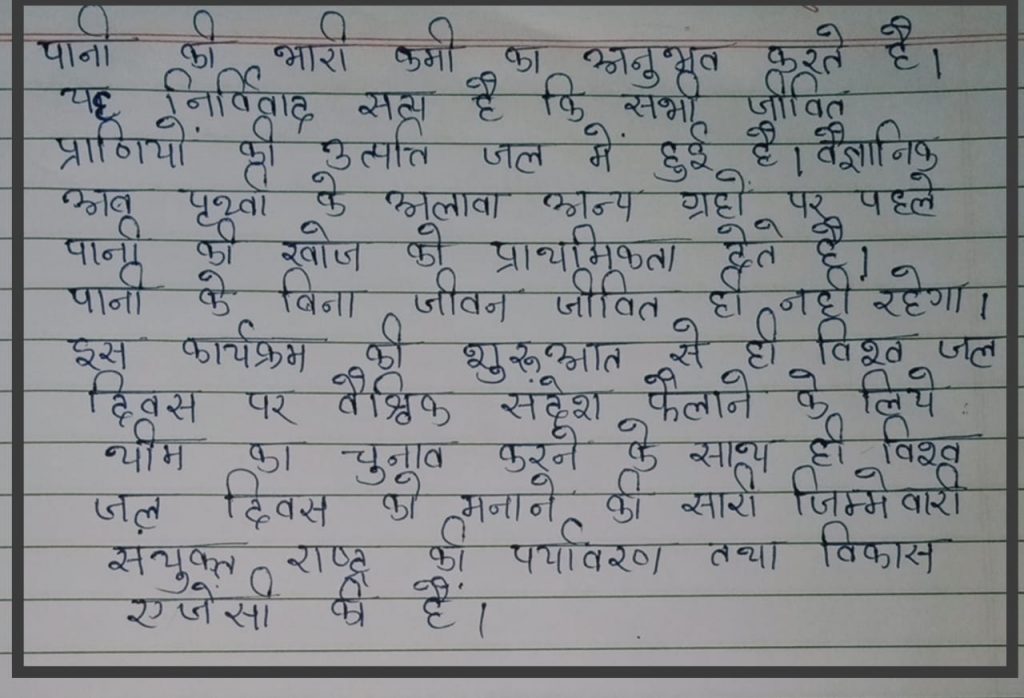 पानी की भारी कमी का अनुभूत करते है।
यह निर्विवाद सत्य है कि सभी जीवित
प्राणियों की उत्पत्ति जल में हुई है। वैज्ञानिक
अब पृथ्वी के अलावा अन्य ग्रहों पर पहले
पानी की खोज को प्राथमिकता देते है।
पानी के बिना जीवन जीवित ही नहीं रहेगा।
इस कार्यक्रम की शुरूआत से ही विश्व जल
दिवस पर वैश्विक संदेश फैलाने के लिये
थीम का चुनाव करने के साथ ही विश्व
जल दिवस को मनाने की सारी जिम्मेवारी
संयुक्त राष्ट्र की पर्यावरण तथा विकास
एजेंसी की हैं।